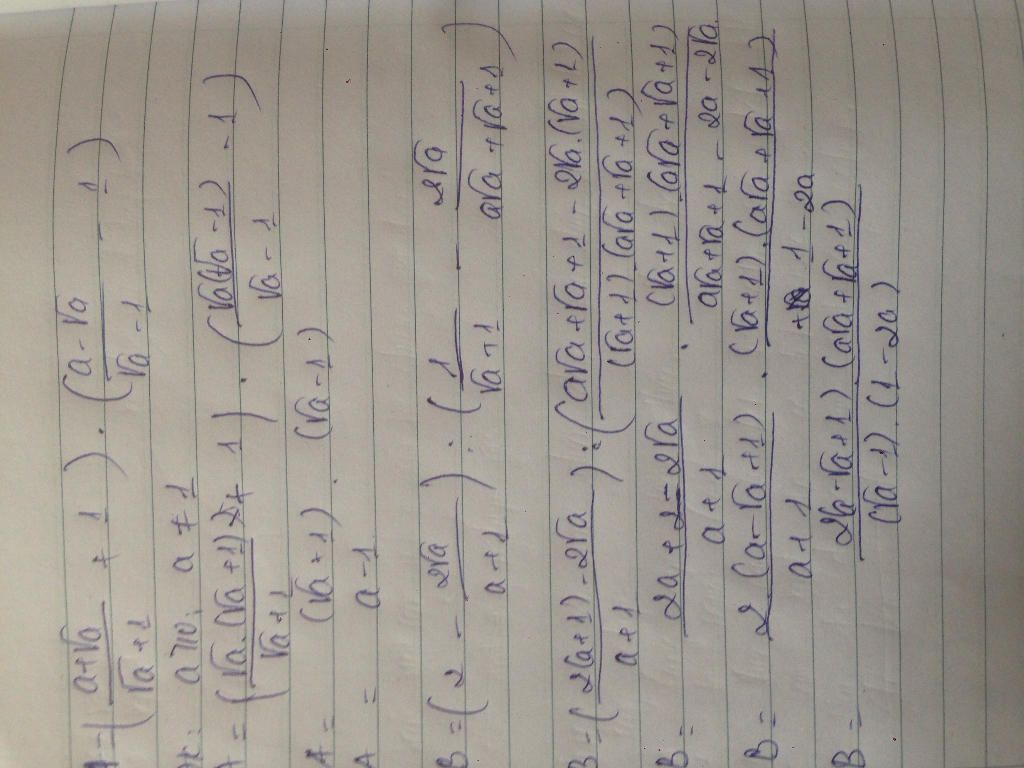 A = ( (a+√a)/(√a+1) + 1 ) . ( (a-√a)/(√a-1) - 1 )
a≥0; a ≠ 1
A = ( √a.(√a+1)/(√a+1) + 1 ) . ( √a(√a-1)/(√a-1) - 1 )
A = (√a+1) . (√a-1)
A = a-1
B = ( 2 - 2√a/(a+1) ) : ( 1/(√a+1) - 2√a/(a√a+√a+1) )
B = ( (2(a+1)-2√a)/(a+1) ) : ( (a√a+√a+1-2√a.(√a+1))/((√a+1)(a√a+√a+1)) )
B = (2a+2-2√a)/(a+1) . (√a+1).(a√a+√a+1)/(a√a+√a+1-2a-2√a)
B = 2(a-√a+1)/(a+1) . (√a+1).(a√a+√a+1)/(1-2a)
B = 2a-√a+1)(a√a+√a+1)/((√a-1).(1-2a)